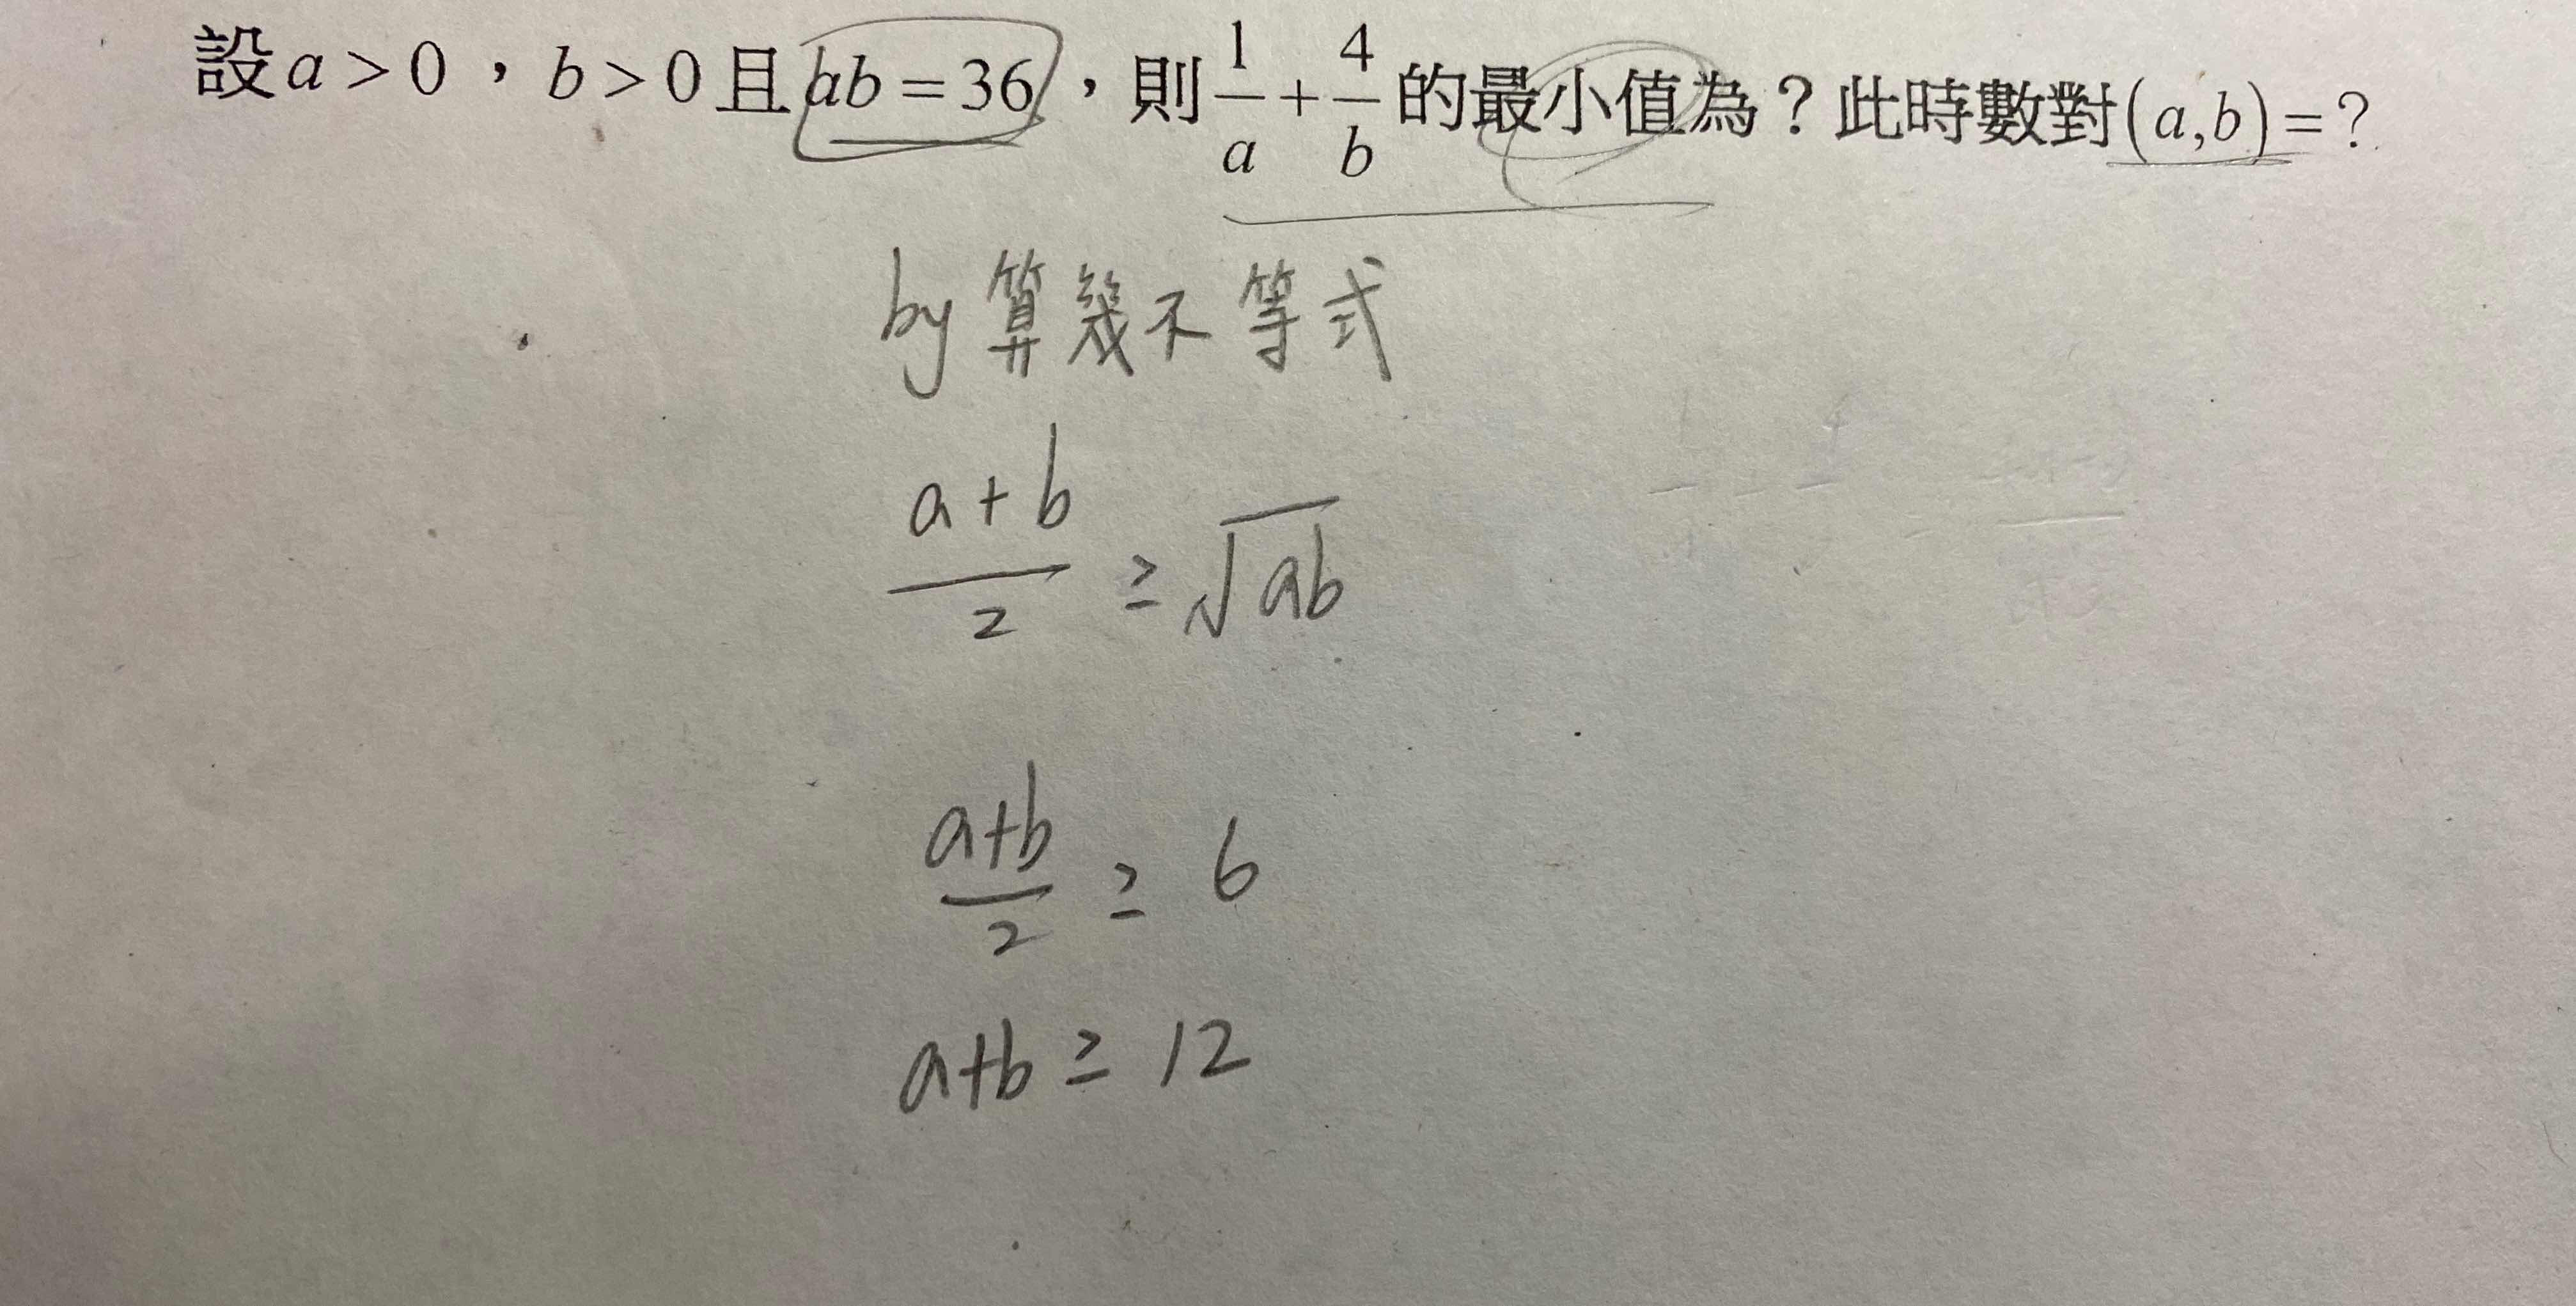 設a>0，b>0且ab=36，則1/a+4/b的最小值為？此時數對(a,b)=?
by 算幾不等式
(a+b)/2 ≥ √ab
(a+b)/2 ≥ 6
a+b ≥ 12